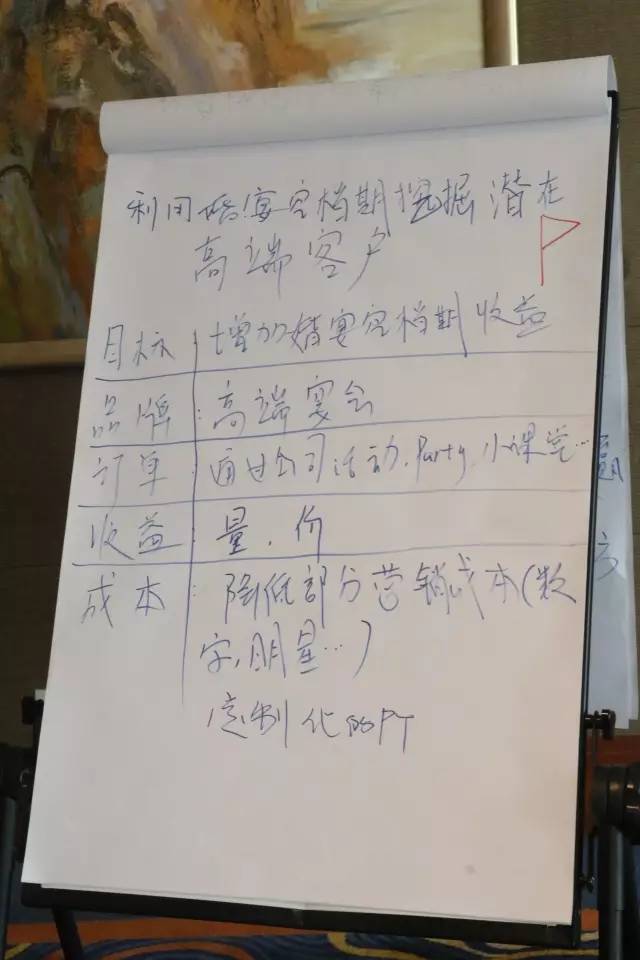 利用婚宴空档期挖掘潜在
高端客户
P
目标 增加婚宴空档期收益
品牌:高端宴会
订单:通过公司活动、Party、小课堂…
收益:量、价
成本:降低部分营销成本(数
字,明星…)
定制化的PT